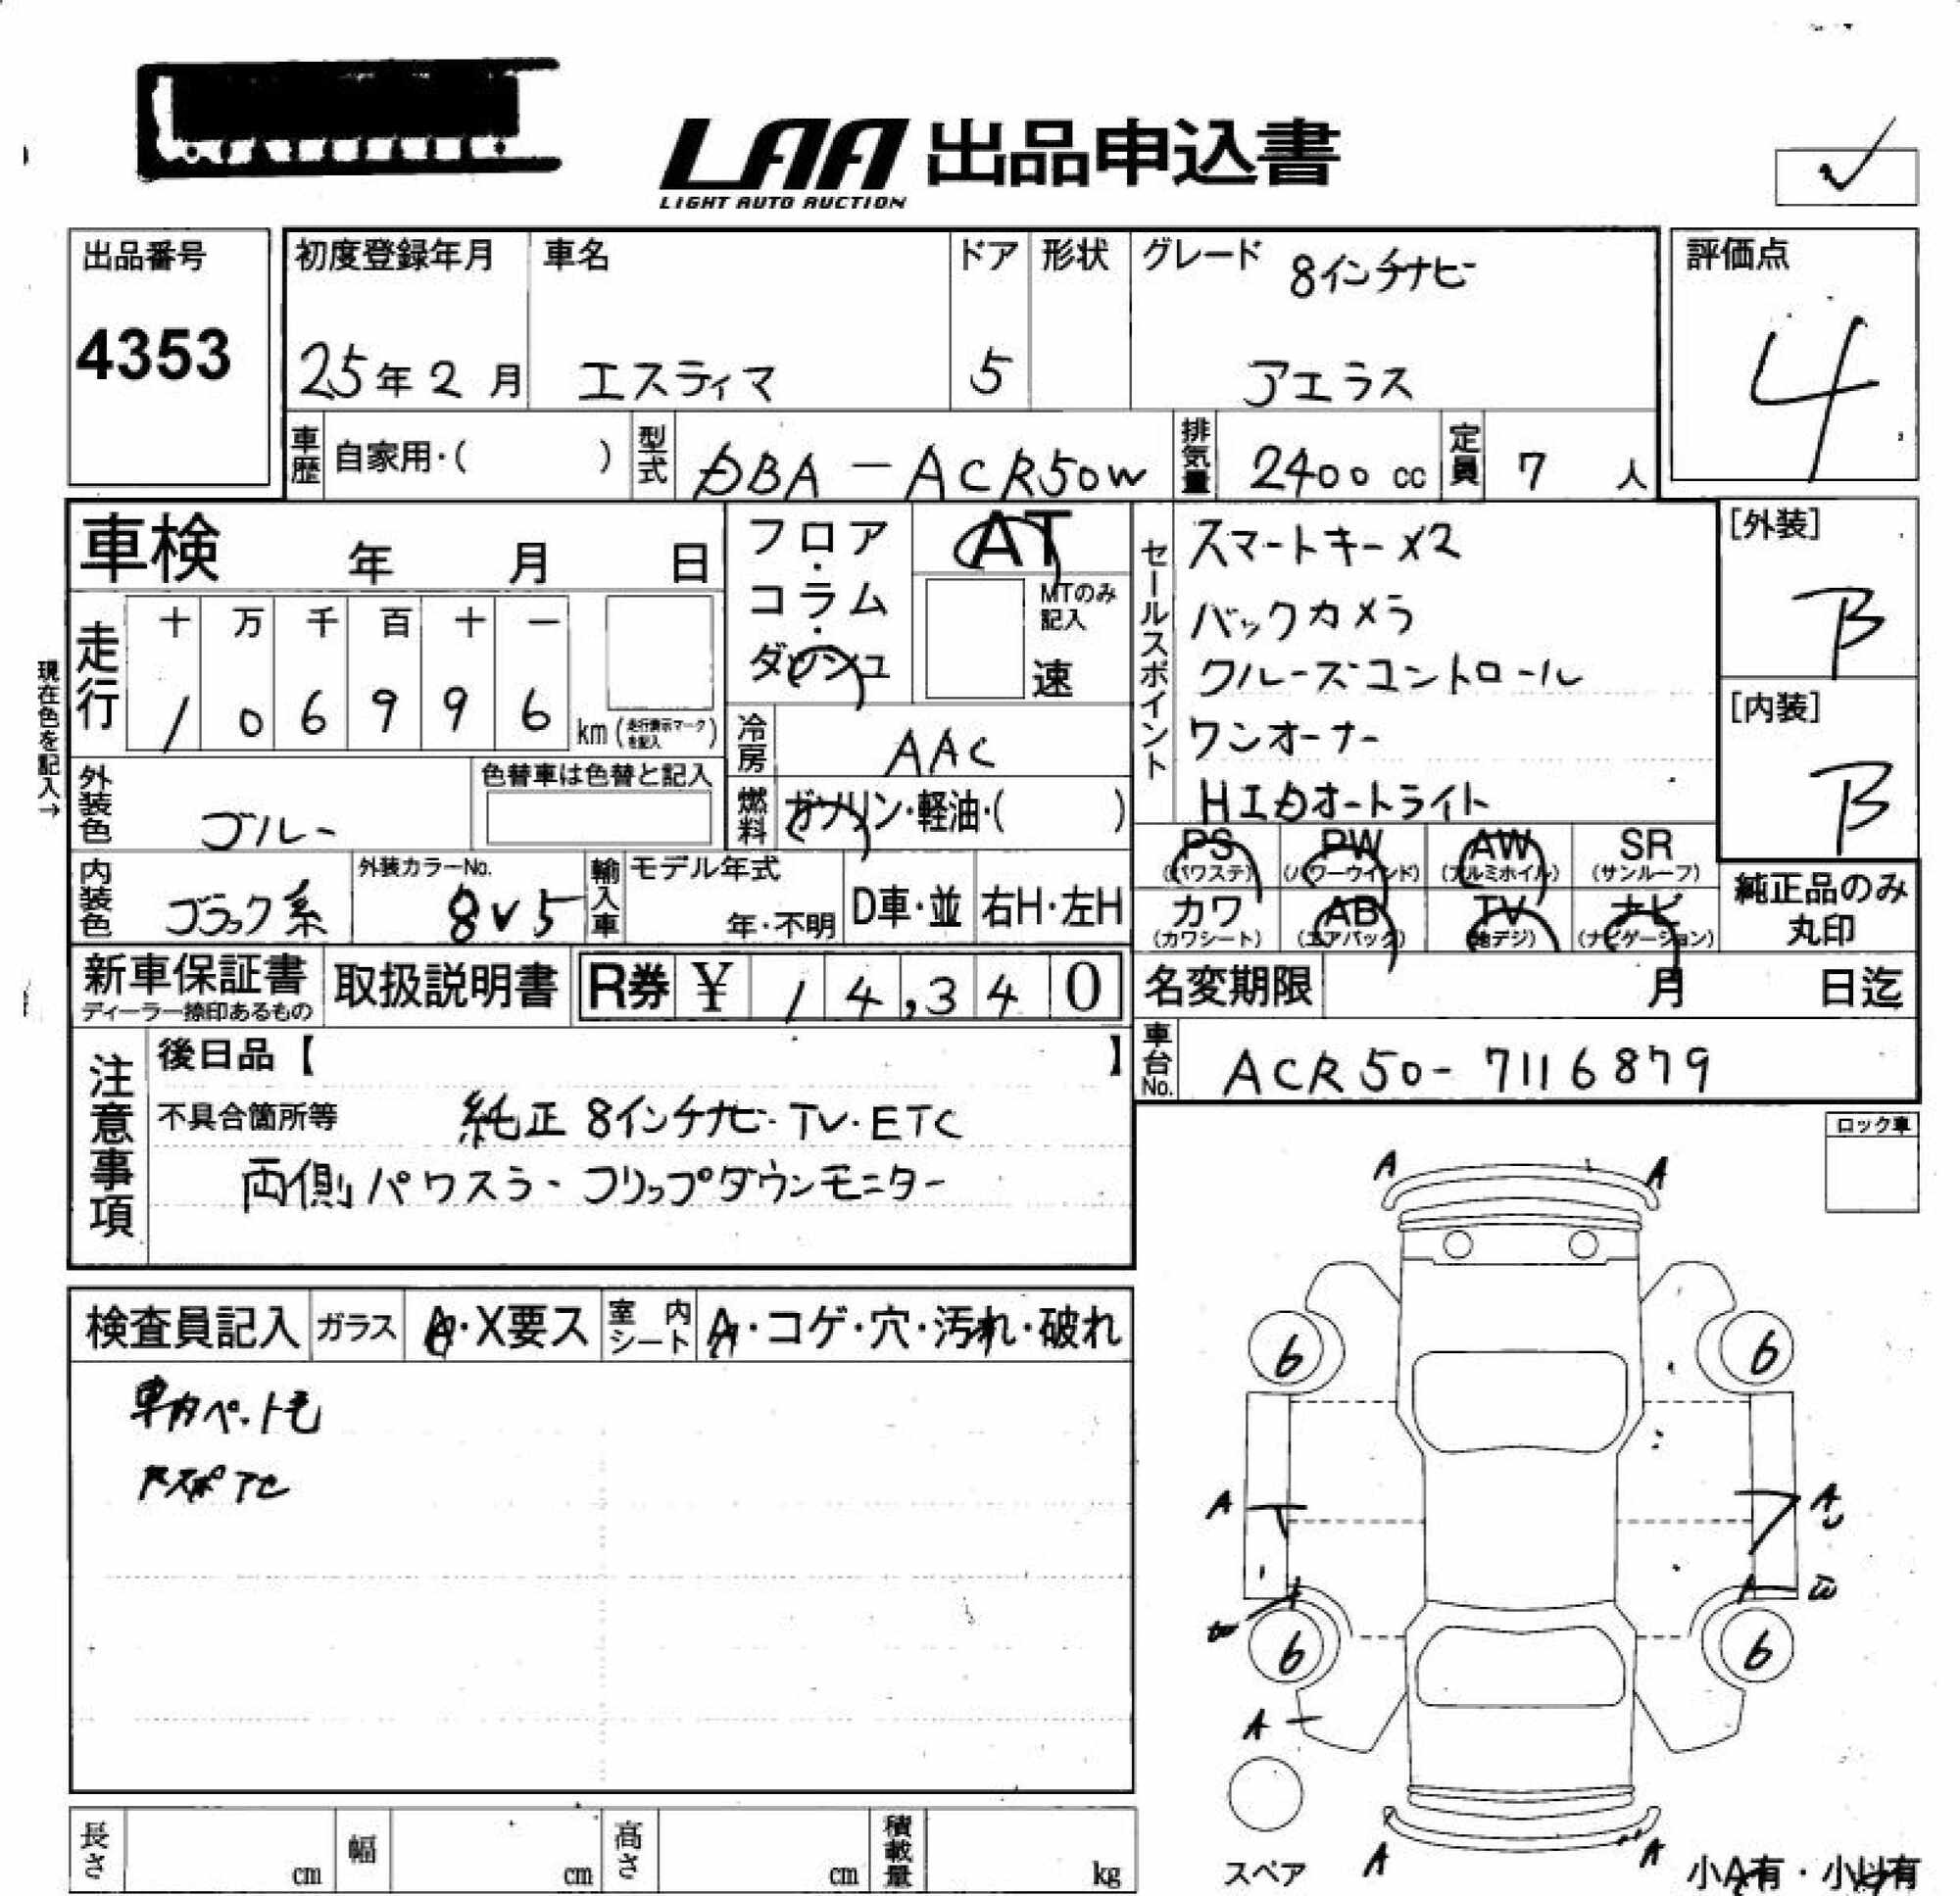 LAA 出品申込書
LIGHT AUTO AUCTION
出品番号
4353
初度登録年月
25年2月
車名
エスティマ
ドア
5
形状
グレード
8インチナビ
アエラス
評価点
4
車歴 自家用・( )
型式 DBA-ACR50W
排気量 2400 cc
定員 7 人
車検 年 月 日
フロア・コラム・ダッシュ
AT
MTのみ記入
速
セールスポイント
スマートキーX2
バックカメラ
クルーズコントロール
ワンオーナー
HIDオートライト
[外装]
B
[内装]
B
現在色を記入→
走行
十 万 千 百 十 一
1 0 6 9 9 6 km (走行表示マークを記入)
冷房 AAC
燃料 ガソリン・軽油・( )
外装色 ブルー
色替車は色替と記入
内装色 ブラック系
外装カラーNo.
8V5
輸入車
モデル年式
年・不明
D車・並
右H・左H
PS (パワステ)
PW (パワーウインド)
AW (アルミホイル)
SR (サンルーフ)
カワ (カワシート)
AB (エアバック)
TV (地デジ)
ナビ (ナビゲーション)
純正品のみ丸印
新車保証書
ディーラー捺印あるもの
取扱説明書
R券 ¥ 14,340
名変期限 月 日迄
車台No. ACR50-7116879
注意事項
後日品【 】
不具合箇所等
純正 8インチナビ・TV・ETC
両側パワスラ・フリップダウンモニター
ロック車
検査員記入
ガラス A・X要ス
室内シート A・コゲ・穴・汚れ・破れ
車内ペット毛
A A
6 6
A A
6 6
A
A A
スペア
小A有・小U有
長さ cm
幅 cm
高さ cm
積載量 kg